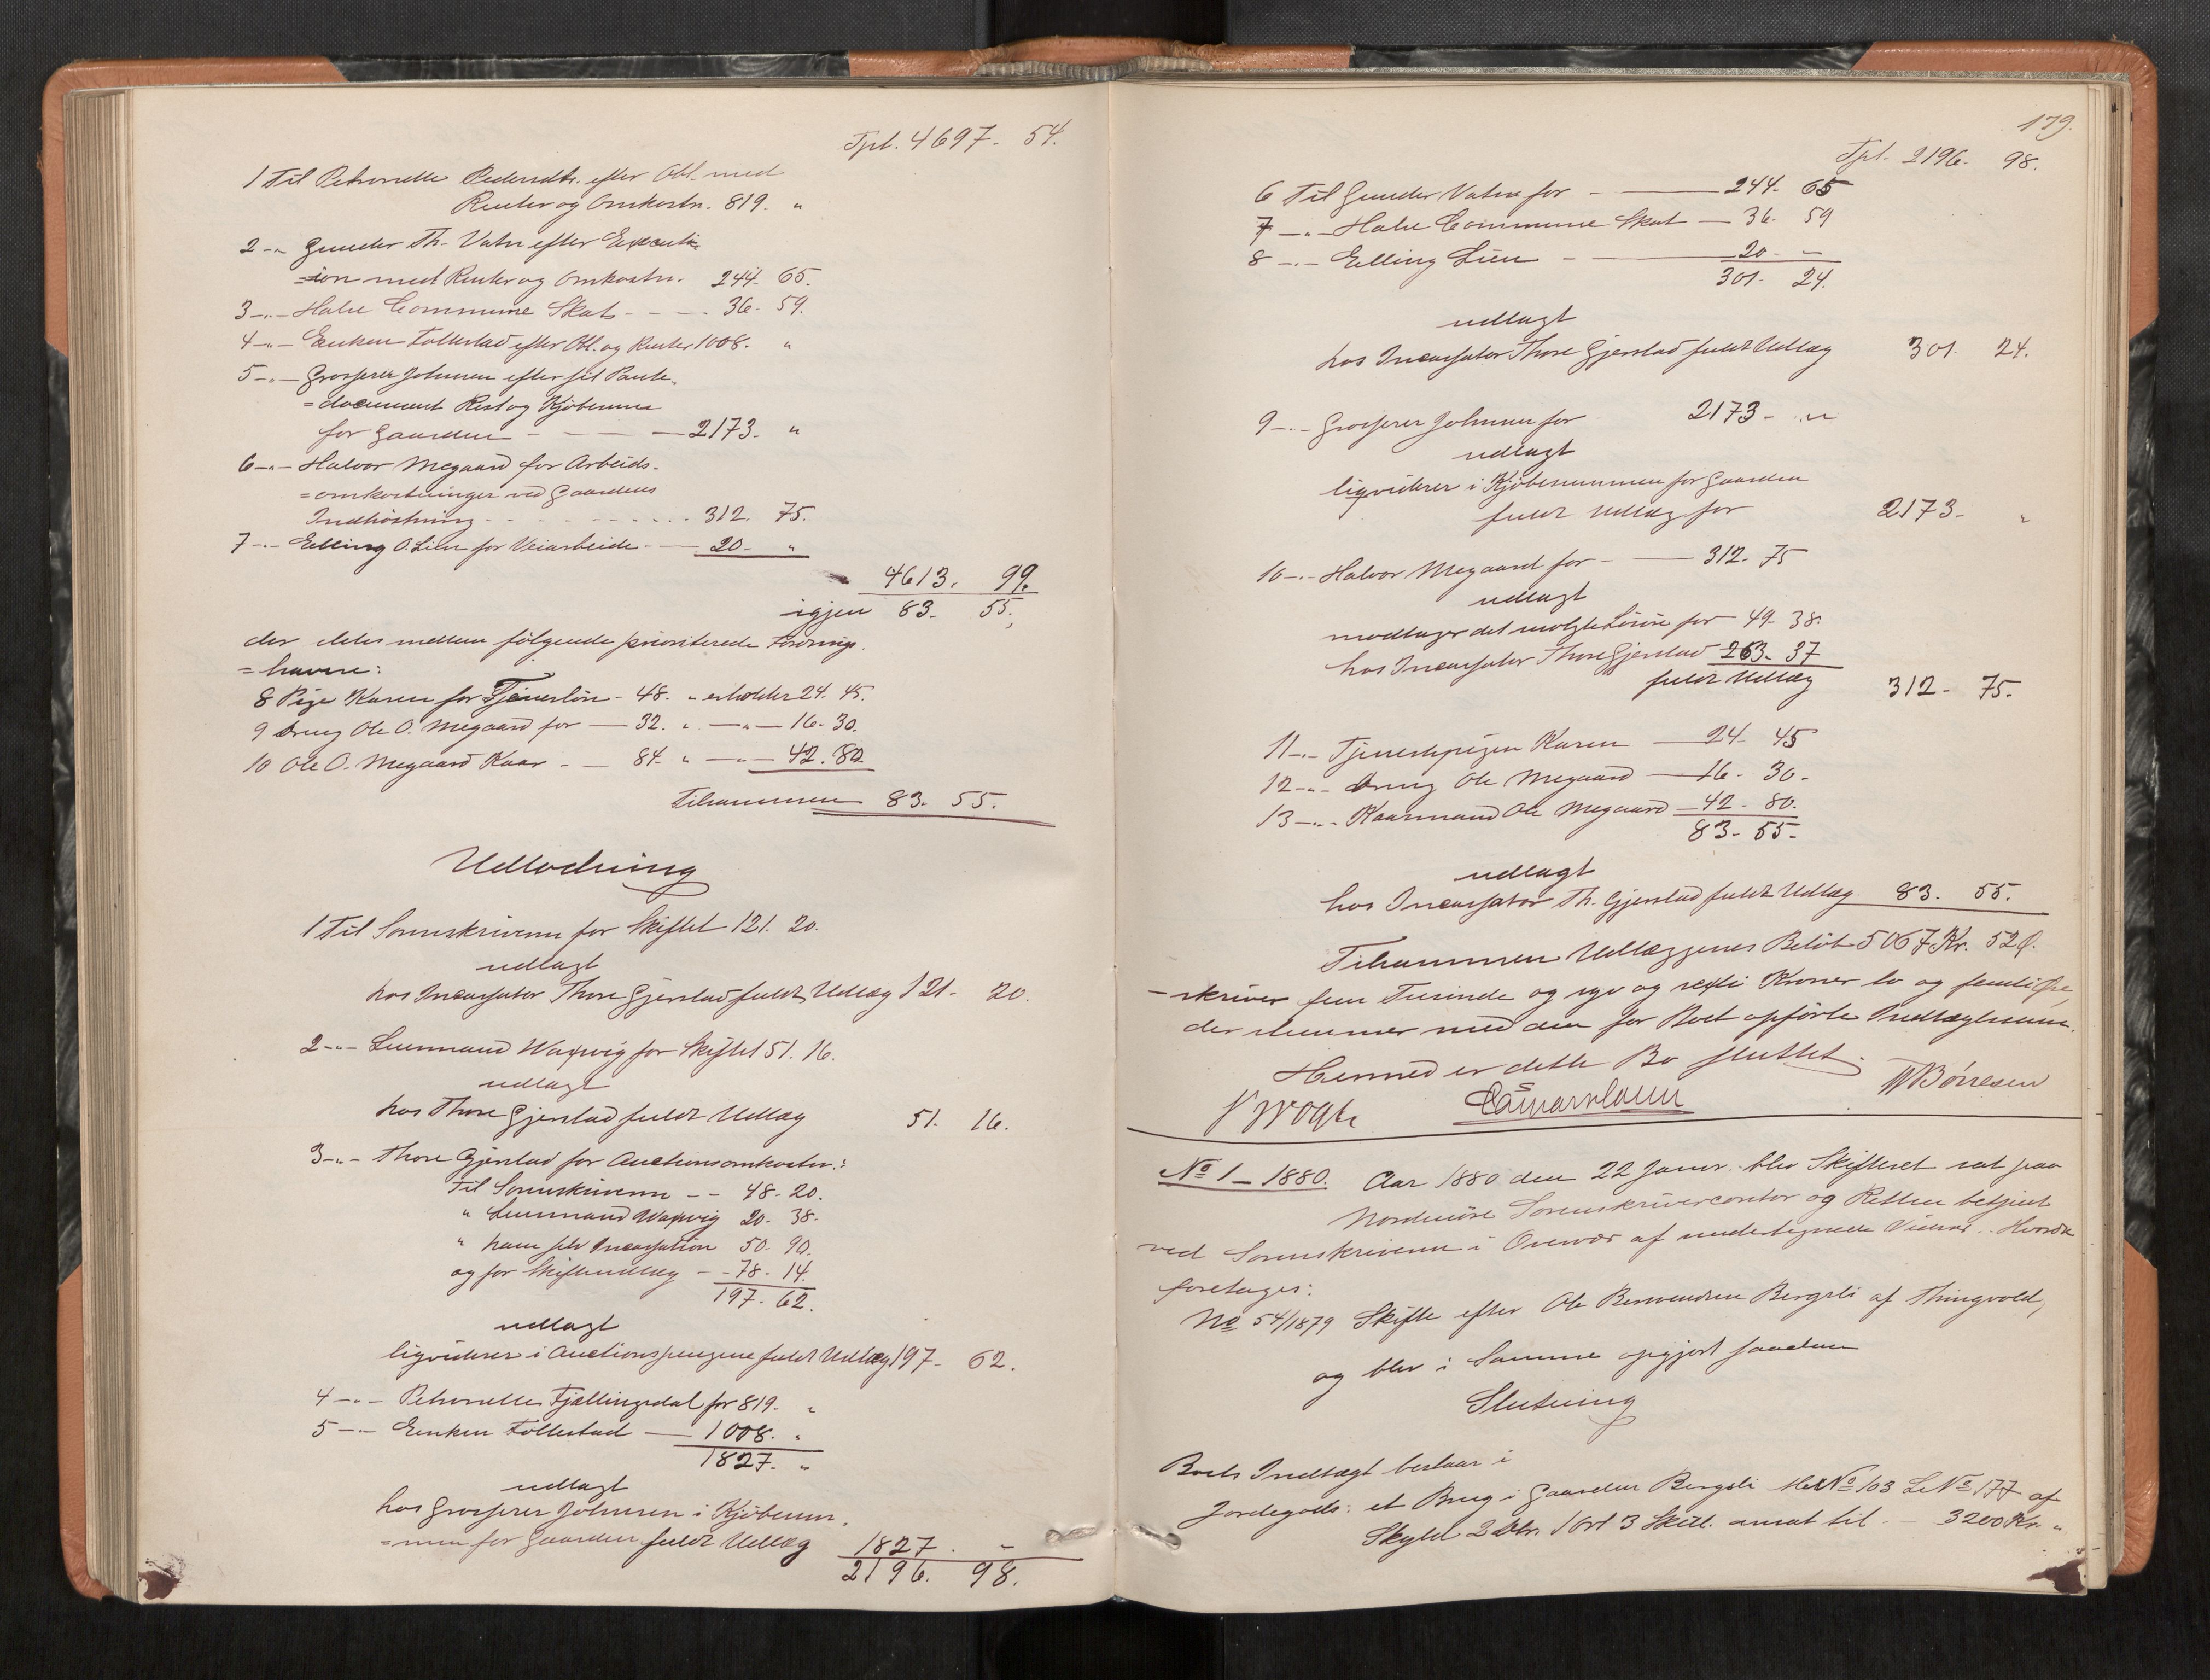 Tpt. 4697. 54.
1 Til Petronelle Pedersdtr. efter Obl. med
Renter og Omkostn. 819. "
2 -"- Gunder Th. Vatn efter Executi
=ion med Renter og Omkostn. 244. 65.
3 -"- Halse Commune Skat - - - 36. 59.
4 -"- Enken Follestad efter Obl. og Renter 1008. "
5 -"- Grosserer Johnsen efter sit Pante-
=document Rest og Kjøbesum
for Gaarden - - - 2173. "
6 -"- Halvor Megaard for Arbeids-
=omkostninger ved Gaardens
Indhøstning - - - 312. 75.
7 -"- Elling O. Lien for Veiarbeide - 20. "
4613. 99.
igjen 83. 55.
der deles mellem følgende prioriterede Fordrings-
=havere:
8 Pige Karen for Tjenerløn - 48. " erholder 24. 45.
9 Dreng Ole O. Megaard for - 32. " -"- 16. 30.
10 Ole O. Megaard Kaar - - 84. " -"- 42. 80.
Tilsammen 83. 55.
Udlodning
1 Til Sorenskriveren for Skiftet 121. 20.
udlagt
hos Incassator Thore Gjerstad fuldt Udlæg 121. 20.
2 -"- Lensmand Waxvig for Skiftet 51. 16.
udlagt
hos Thore Gjerstad fuldt Udlæg 51. 16.
3 -"- Thore Gjerstad for Auctionsomkostn.:
Til Sorenskriveren - - 48. 20.
" Lensmand Waxvig 20. 38.
" ham selv Incassation 50. 90.
og for Skifteudlæg - - 78. 14.
197. 62.
udlagt
liqviderer i Auctionspengene fuldt Udlæg 197. 62.
4 -"- Petronelle Fjællingsdal for 819. "
5 -"- Enken Follestad - 1008. "
1827. "
udlagt
hos Grosserer Johnsen i Kjøbesum-
=men for Gaarden fuldt Udlæg 1827. -
2196. 98.
179.
Tpt. 2196. 98.
6 Til Gunder Vatn for - - 244. 65
7 -"- Halse Commune Skat - 36. 59
8 -"- Elling Lien - - 20. -
301. 24.
udlagt
hos Incassator Thore Gjerstad fuldt Udlæg 301. 24.
9 -"- Grosserer Johnsen for 2173. "
udlagt
liqviderer i Kjøbesummen for Gaarden
fuldt Udlæg for 2173. "
10 -"- Halvor Megaard for - - 312. 75
udlagt
modtager det solgte Løsøre for 49. 38.
hos Incassator Thore Gjerstad 263. 37
fuldt Udlæg 312. 75.
11 -"- Tjenestepigen Karen - 24. 45
12 -"- Dreng Ole Megaard - 16. 30.
13 -"- Kaarmand Ole Megaard - 42. 80.
83. 55.
udlagt
hos Incassator Th. Gjerstad fuldt Udlæg 83. 55.
Tilsammen Udlæggenes Beløb 5067 Kr. 52 Ø.
- skriver fem Tusinde og syv og sexti Kroner to og femti Øre,
der stemmer med den for Boet opførte Indtægtssum.
Hermed er dette Bo sluttet.
W Børresen
No 1 - 1880. Aar 1880 den 22 Januar blev Skifteret sat paa
Nordmøre Sorenskrivercontor og Retten betjent
ved Sorenskriveren i Overvær af undertegnede Vidner. Hvorda
foretages:
No 54/1879 Skifte efter Ole Bersvendsen Bergsli af Thingvold,
og blev i Samme opgjort saadan
Slutning
Boets Indtægt bestaar i
Jordegods: et Brug i Gaarden Bergsli MatNo 103 LNo 177 af
Skyld 2 Dlr. 1 Ort 3 Skill. ansat til - 3200 Kr. "